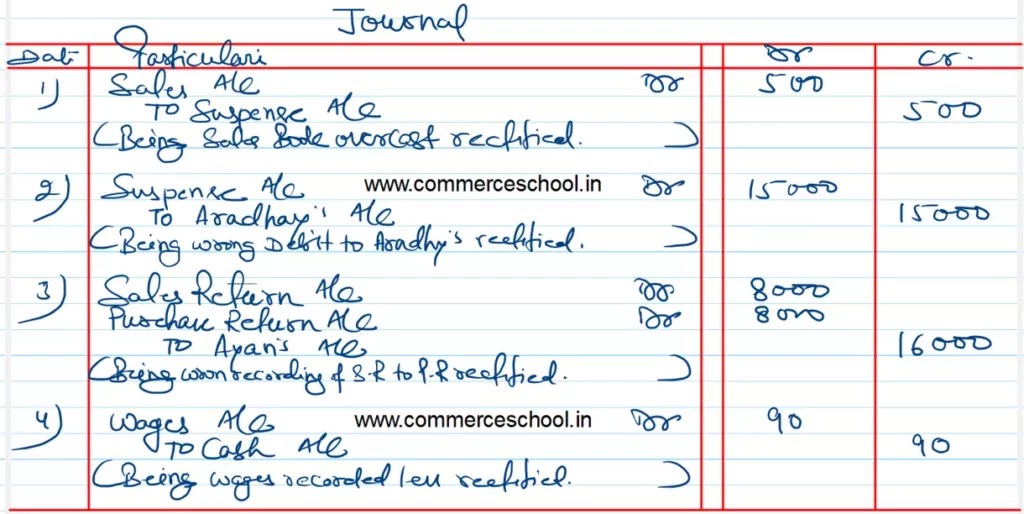 Journal
Date Particulars Dr Cr.
1) Sales A/c Dr 500
To Suspense A/c 500
(Being Sales Book overcast rectified.)
2) Suspense A/c www.commerceschool.in Dr 15000
To Aradhay's A/c 15000
(Being wrong Debit to Aradhy's rectified.)
3) Sales Return A/c Dr 8000
Purchase Return A/c Dr 8000
To Ayan's A/c 16000
(Being wron recording of S-R to P-R rectified.)
4) Wages A/c www.commerceschool.in Dr 90
To Cash A/c 90
(Being wages recorded less rectified.)